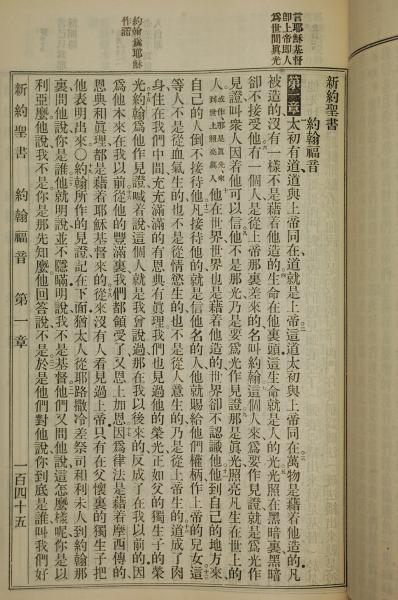 言耶穌基督
卽上帝卽人
爲世間眞光
約翰爲耶穌
作證
新約聖書
約翰福音
第一章 太初有道道與上帝同在道就是上帝這道太初與上帝同在萬物是藉着他造的凡
被造的沒有一樣不是藉着他造的生命在他裏頭這生命就是人的光光照在黑暗裏黑暗
卻不接受他有一個人是從上帝那裏差來的名叫約翰這個人來爲要作見證就是爲光作
見證叫衆人因着他可以信他不是那光乃是要爲光作見證那是眞光照亮凡生在世上的
人或作那是眞光來到世上照亮衆人他在世界世界也是藉着他造的世界卻不認識他他到自己的地方來
自己的人倒不接待他凡接待他的就是信他名的人他就賜給他們權柄作上帝的兒女這
等人不是從血氣生的也不是從情慾生的也不是從人意生的乃是從上帝生的道成了肉
身住在我們中間充充滿滿的有恩典有眞理我們也見過他的榮光正如父的獨生子的榮
光約翰爲他作見證喊着說這個人就是我曾說過那在我以後來的反成了在我以前的因
爲他本來在我以前從他的豐滿裏我們都領受了又恩上加恩因爲律法是藉着摩西傳的
恩典和眞理都是藉着耶穌基督來的從來沒有人看見過上帝只有在父懷裏的獨生子把
他表明出來○約翰所作的見證記在下面猶太人從耶路撒冷差祭司和利未人到約翰那
裏問他說你是誰他就明說並不隱瞞明說我不是基督他們又問他說這怎麼樣呢你是以
利亞麼他說我不是你是那先知麼他回答說不是於是他們對他說你到底是誰叫我們好
新約聖書 約翰福音 第一章 一百四十五